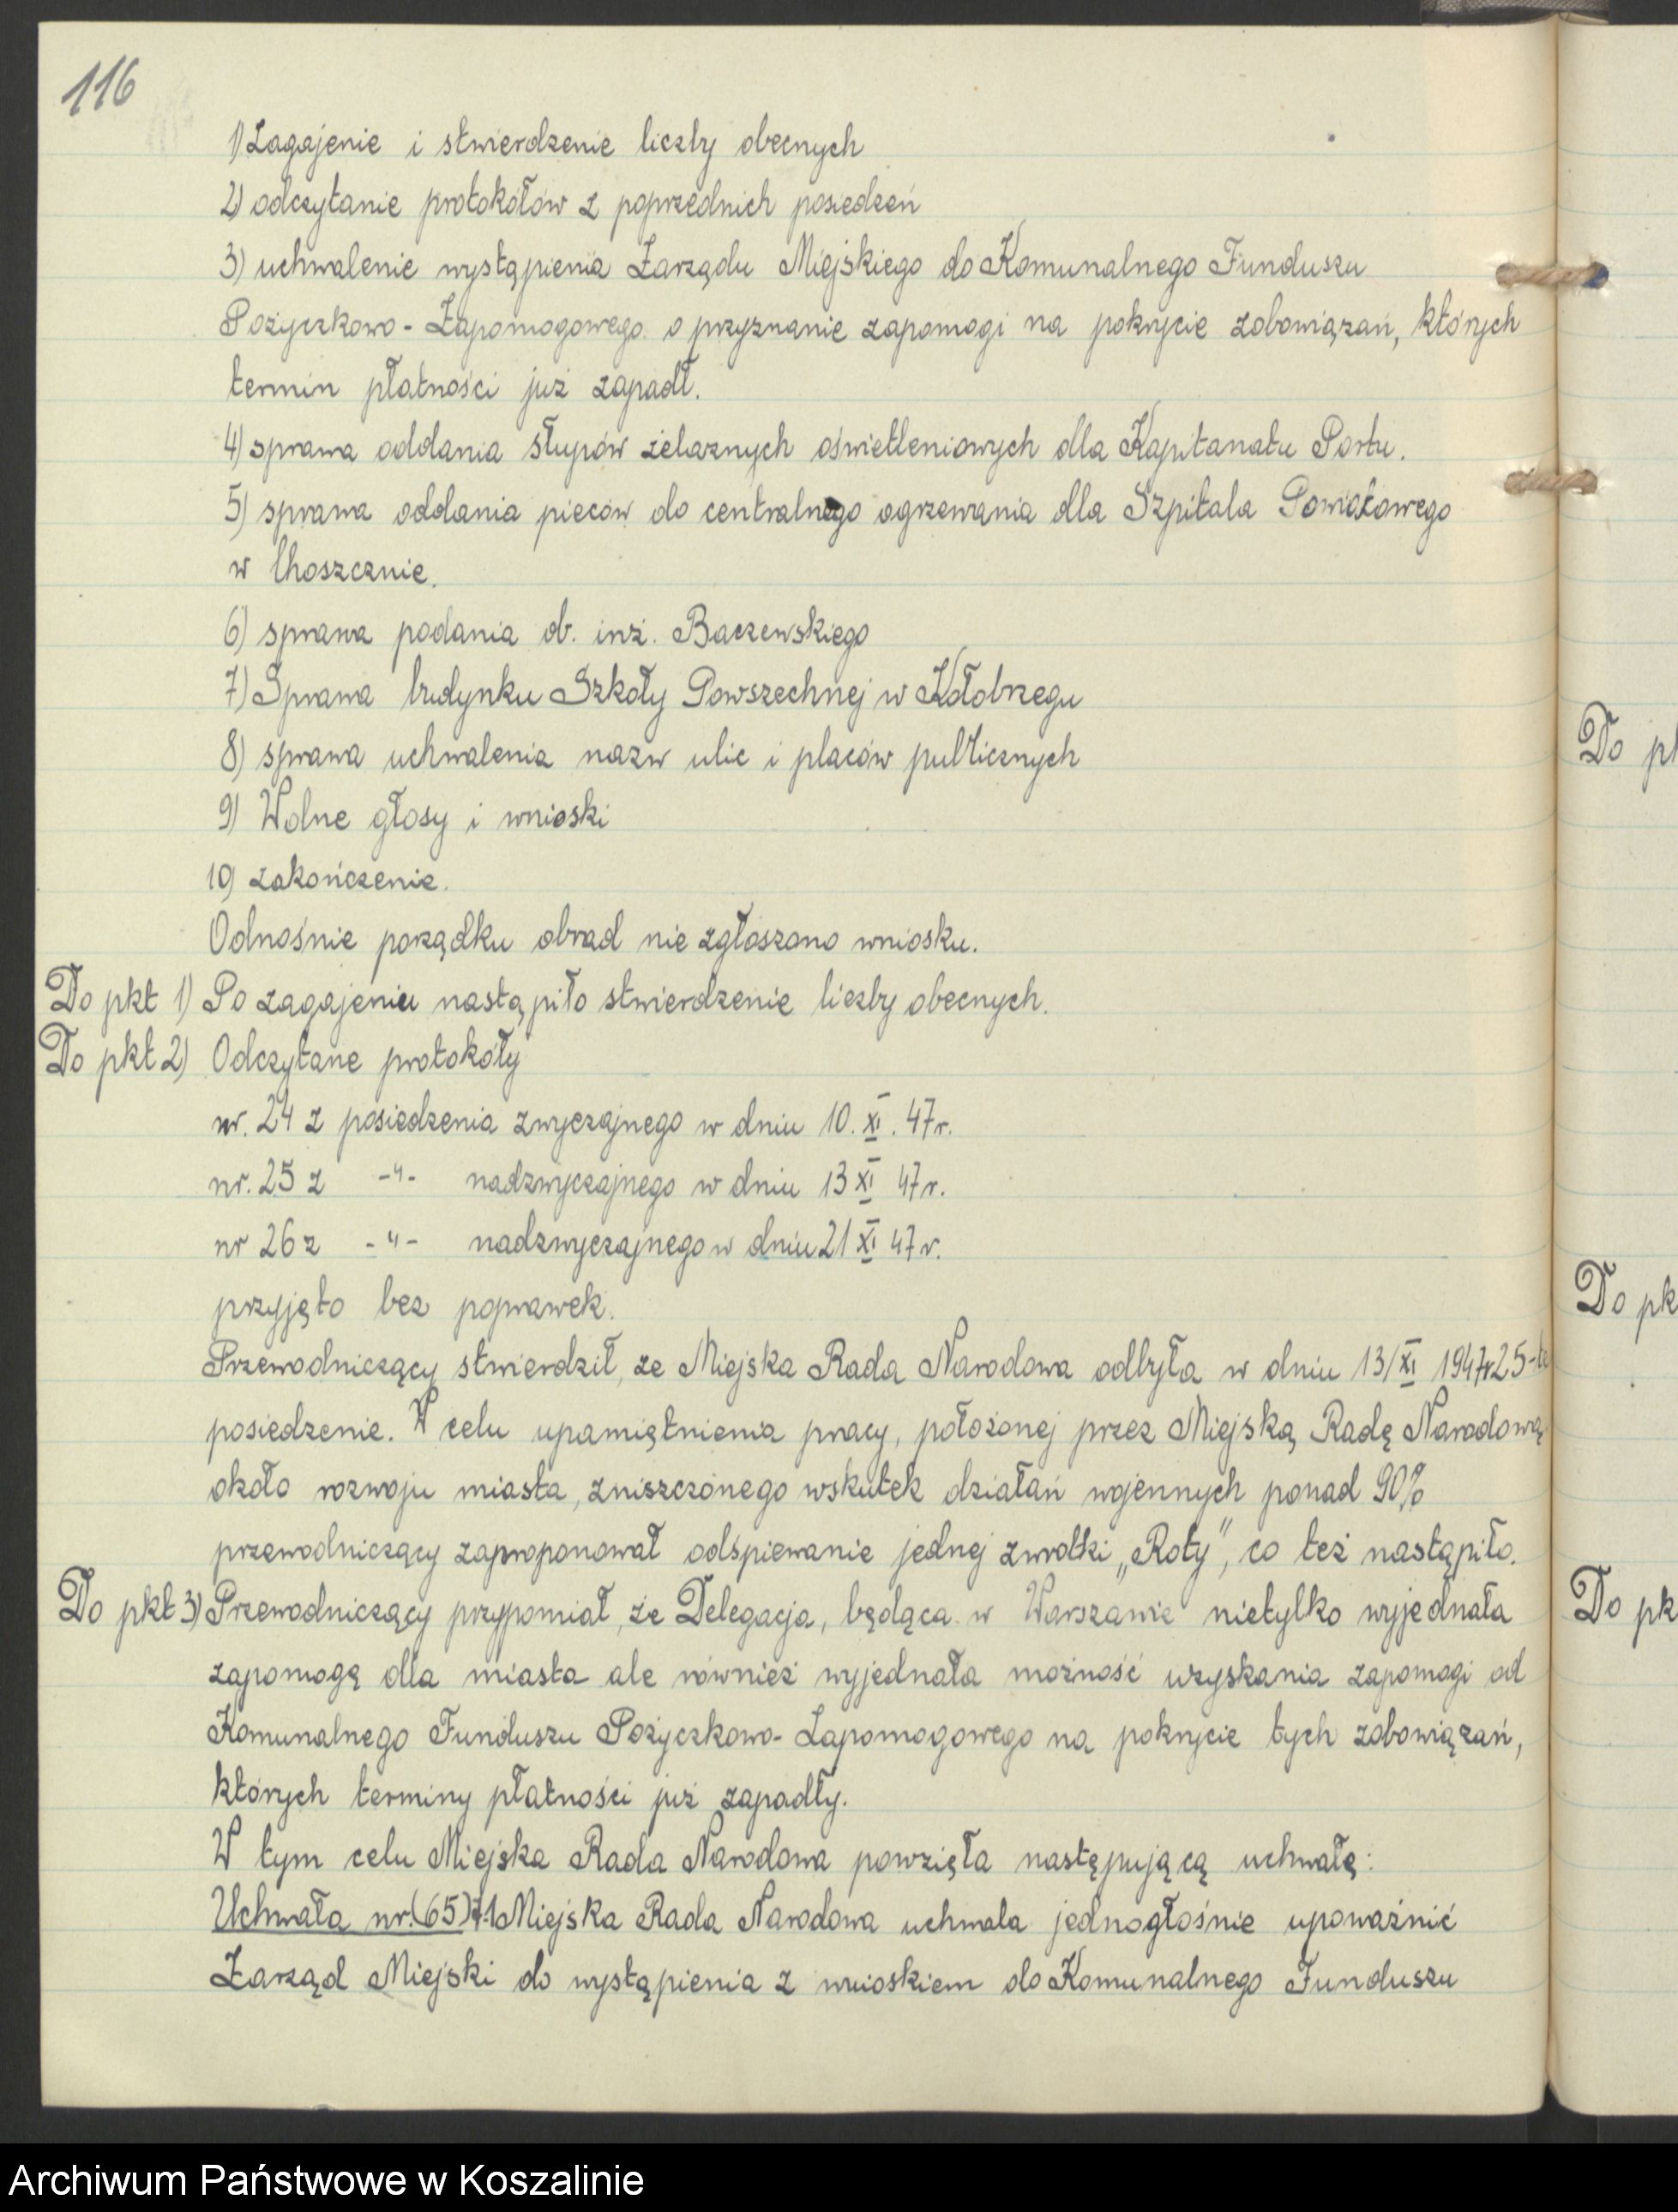 116
1) Zagajenie i stwierdzenie liczby obecnych
2) odczytanie protokółów z poprzednich posiedzeń
3) uchwalenie wystąpienia Zarządu Miejskiego do Komunalnego Funduszu
Pożyczkowo-Zapomogowego o przyznanie zapomogi na pokrycie zobowiązań, których
termin płatności już zapadł.
4) sprawa oddania słupów żelaznych oświetleniowych dla Kapitanatu Portu.
5) sprawa oddania pieców do centralnego ogrzewania dla Szpitala Powiatowego
w Choszcznie.
6) sprawa podania ob. inż. Baczewskiego
7) Sprawa budynku Szkoły Powszechnej w Kołobrzegu
8) sprawa uchwalenia nazw ulic i placów publicznych
9) Wolne głosy i wnioski
10) zakończenie.
Odnośnie porządku obrad nie zgłoszono wniosku.
Do pkt 1) Po zagajeniu nastąpiło stwierdzenie liczby obecnych.
Do pkt 2) Odczytane protokóły
nr. 24 z posiedzenia zwyczajnego w dniu 10. XI. 47r.
nr. 25 z -"- nadzwyczajnego w dniu 13 XI 47r.
nr 26 z -"- nadzwyczajnego w dniu 21 XI 47r.
przyjęto bez poprawek.
Przewodniczący stwierdził, że Miejska Rada Narodowa odbyła w dniu 13/XI 1947r 25-te
posiedzenie. W celu upamiętnienia pracy, położonej przez Miejską Radę Narodową
około rozwoju miasta, zniszczonego wskutek działań wojennych ponad 90%
przewodniczący zaproponował odśpiewanie jednej zwrotki „Roty", co też nastąpiło.
Do pkt 3) Przewodniczący przypomiał, że Delegacja, będąca w Warszawie nietylko wyjednała
zapomogę dla miasta ale również wyjednała możność uzyskania zapomogi od
Komunalnego Funduszu Pożyczkowo-Zapomogowego na pokrycie tych zobowiązań,
których terminy płatności już zapadły.
W tym celu Miejska Rada Narodowa powzięła następującą uchwałę:
Uchwała nr. (65) 71 Miejska Rada Narodowa uchwala jednogłośnie upoważnić
Zarząd Miejski do wystąpienia z wnioskiem do Komunalnego Funduszu
Do pk
Do pk
Do pk
Archiwum Państwowe w Koszalinie